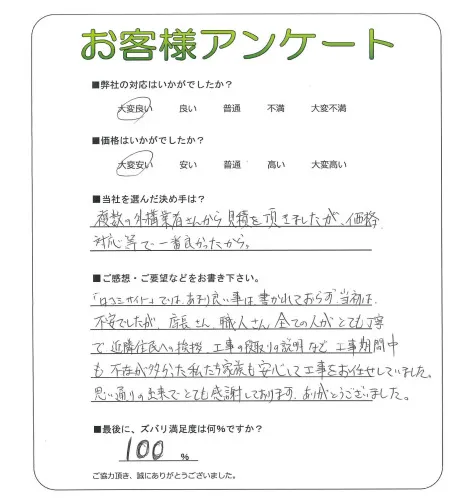 お客様アンケート
■弊社の対応はいかがでしたか？
大変良い 良い 普通 不満 大変不満
■価格はいかがでしたか？
大変安い 安い 普通 高い 大変高い
■当社を選んだ決め手は？
複数の外構業者さんから見積を頂きましたが、価格
対応等で一番良かったから。
■ご感想・ご要望などをお書き下さい。
「口コミサイト」では、あまり良い事は書かれておらず、当初は、
不安でしたが、店長さん、職人さん全ての人がとても丁寧
で近隣住民への挨拶、工事の段取りの説明など、工事期間中
も不在が多かった私たち家族も安心して工事をお任せしていました。
思い通りの出来でとても感謝しております。ありがとうございました。
■最後に、ズバリ満足度は何％ですか？
100 %
ご協力頂き、誠にありがとうございました。